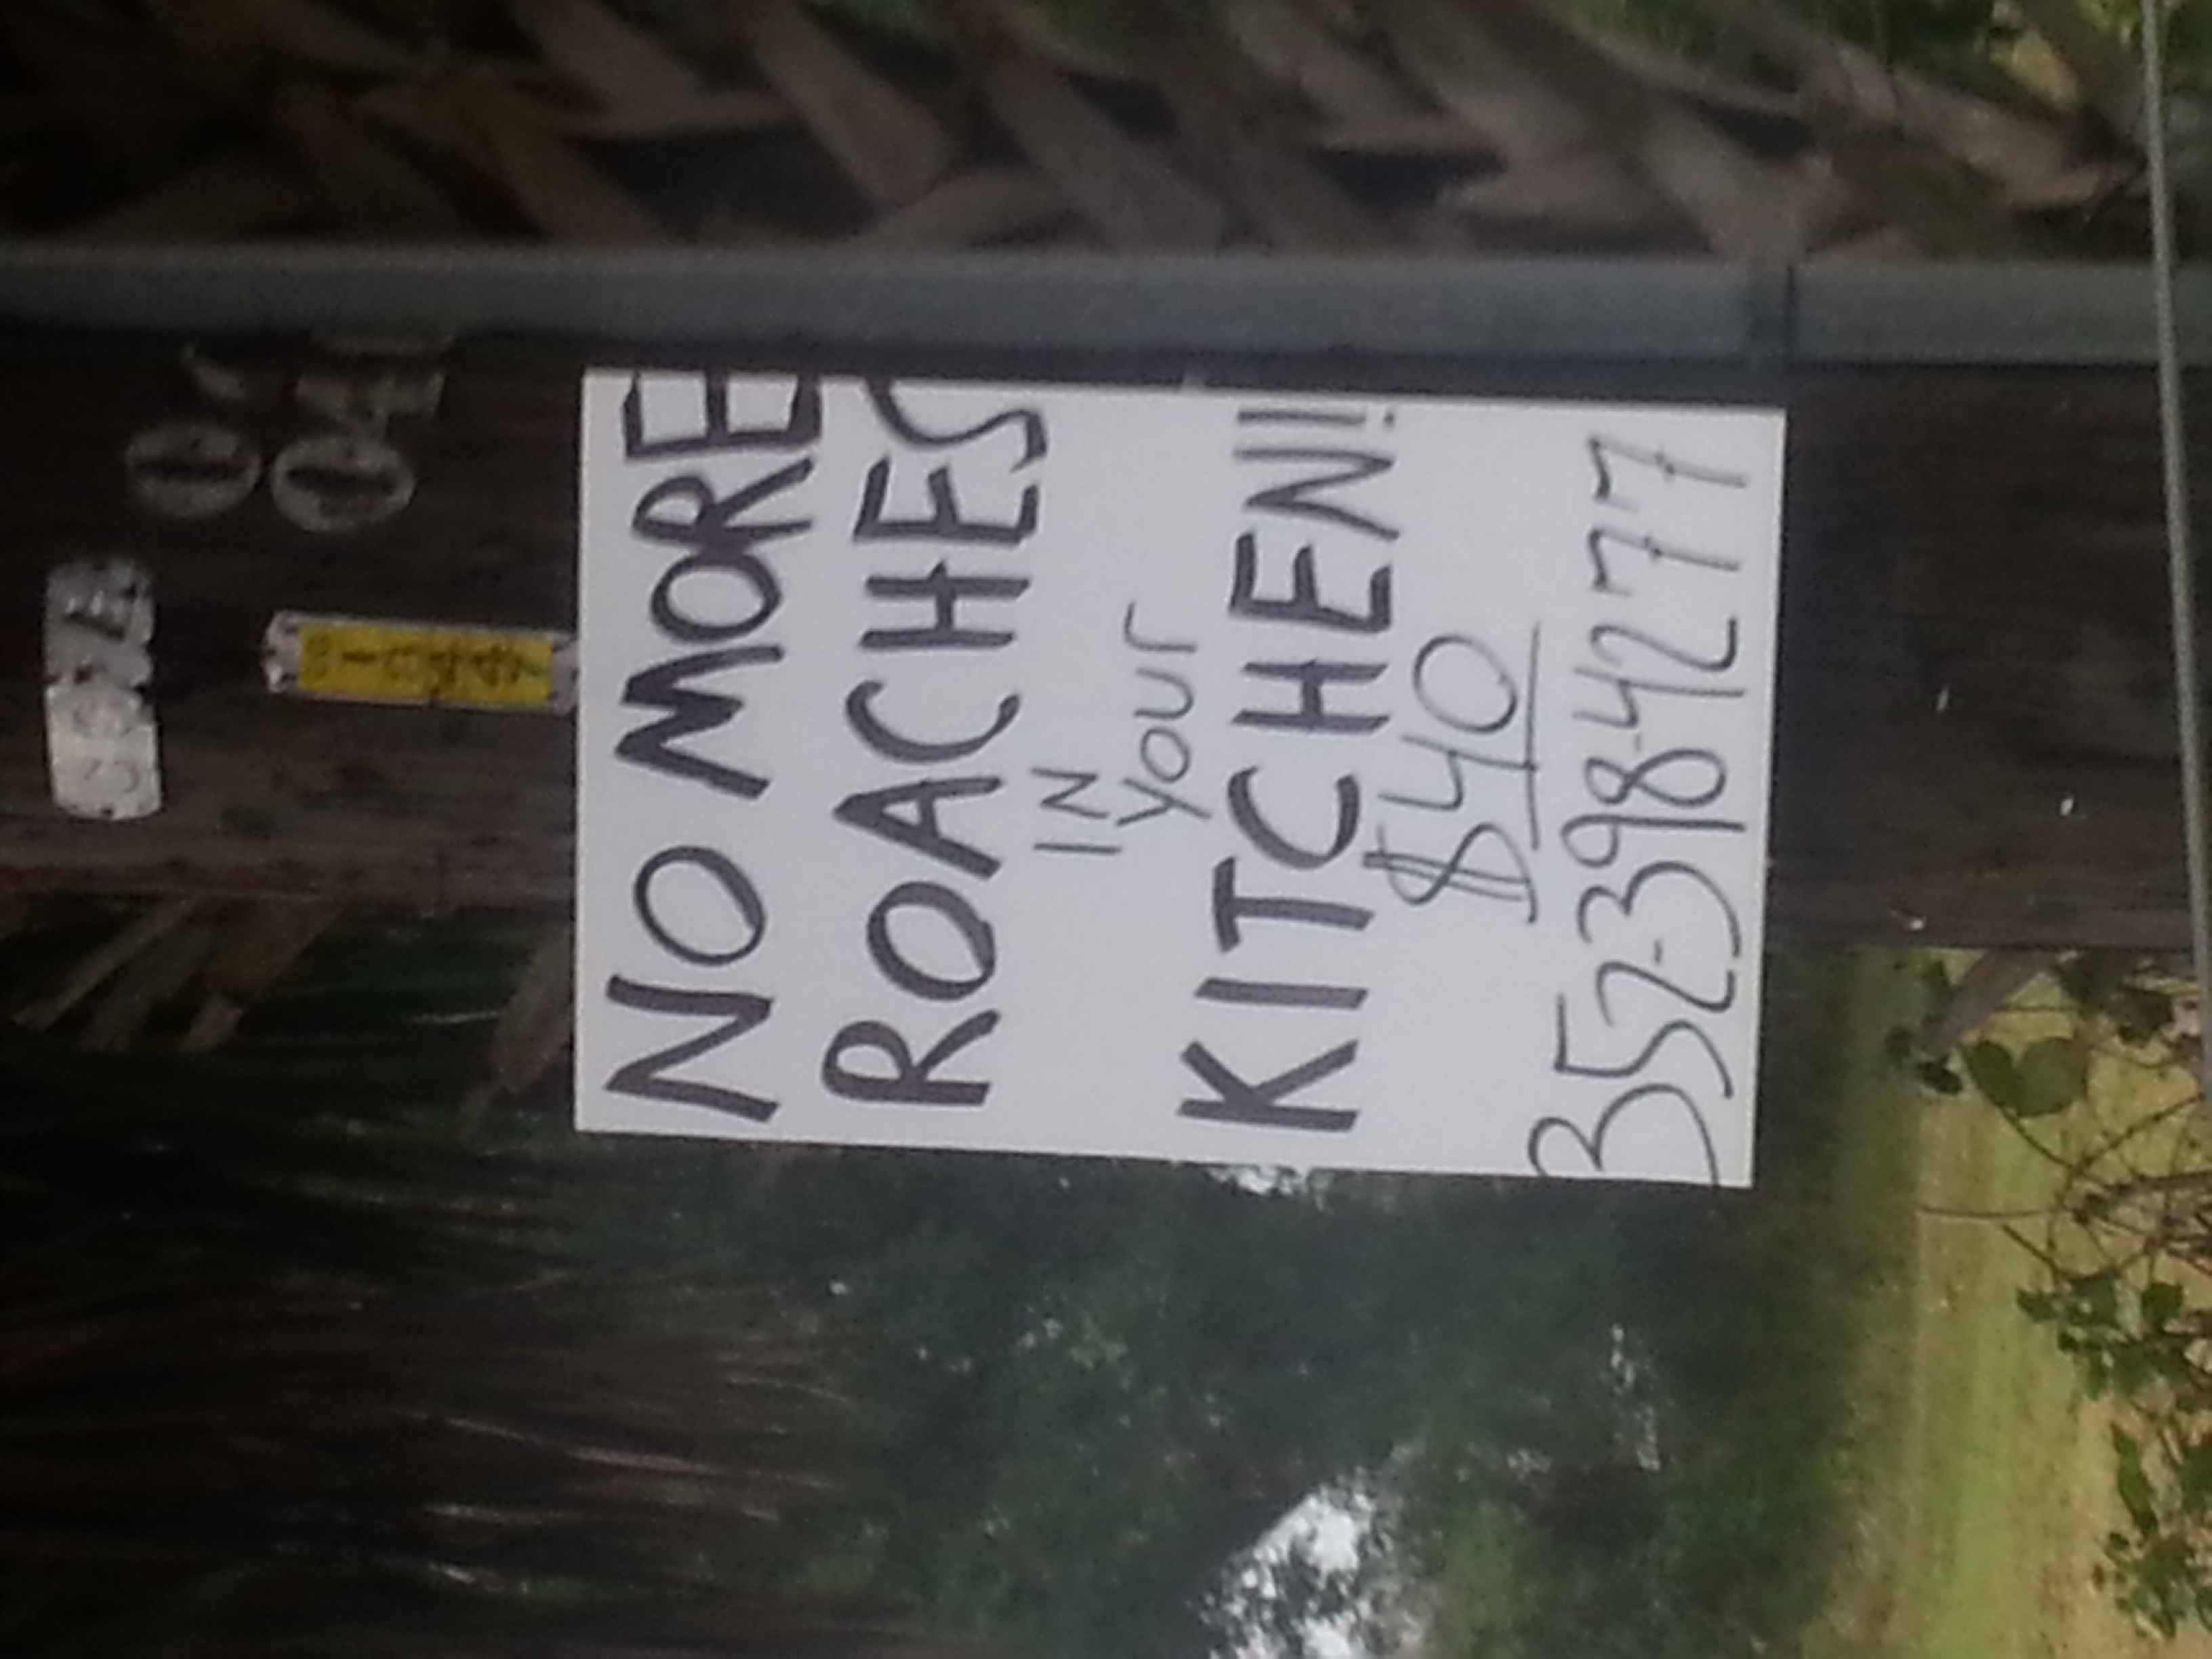 04
NO MORE
ROACHES
IN
your
KITCHEN!
$40
352-398-4277